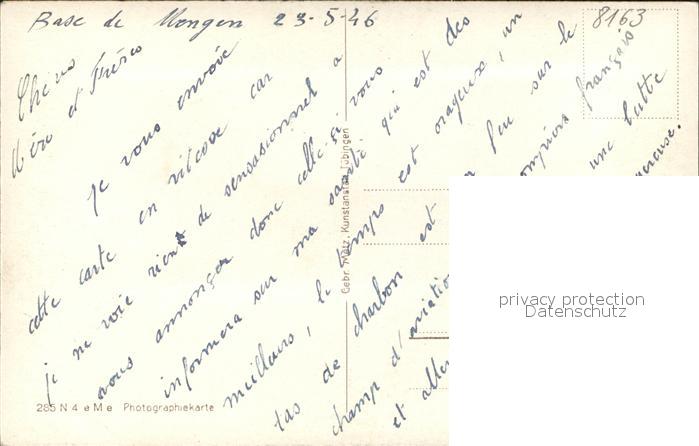 Base de Mengen 23-5-46
8163
Chers
Mère et Frères
Je vous envoie
cette carte en vitesse car
je ne voie rien de sensasionnel a
vous annonçer donc celle-ci vous
informera sur ma santé qui est des
meilleurs, le temps est orageux, un
tas de charbon est feu sur le
champ d'aviation pompiers français
et une lutte
Gebr. Metz, Kunstanstalt, Tübingen
285 N 4 e M e Photographiekarte
privacy protection
Datenschutz